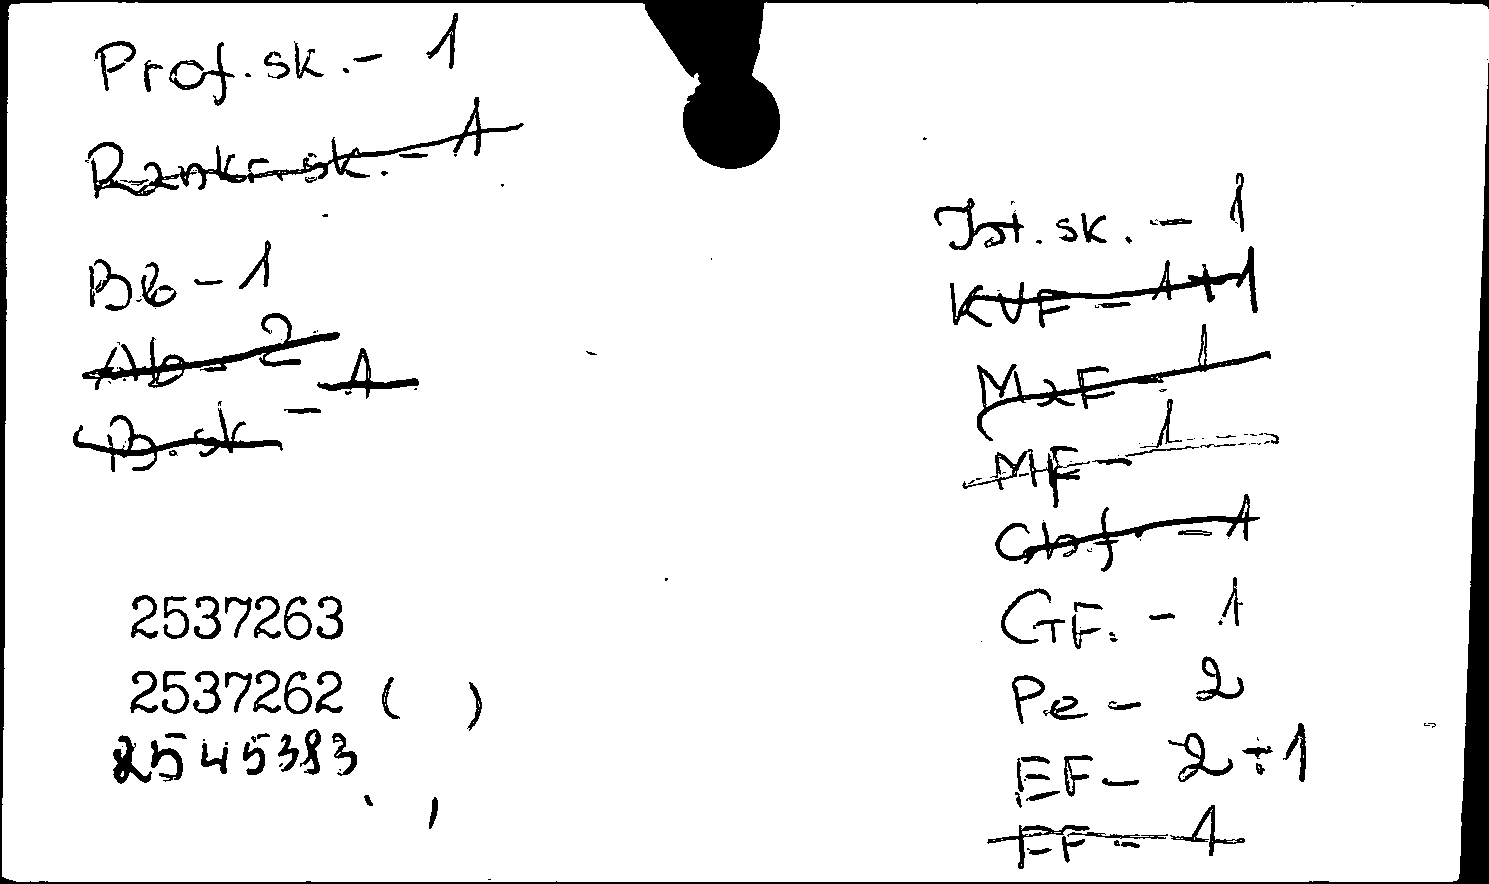 Prof. sk. - 1
Rankr. sk. - 1
Bb - 1
Ab - 2
B. sk - 1
2537263
2537262 ( )
2545383
Jst. sk. - 1
KVF - 1 + 1
MaF - 1
MF - 1
Gbf. - 1
GF. - 1
Pe - 2
EF - 2 + 1
FF - 1